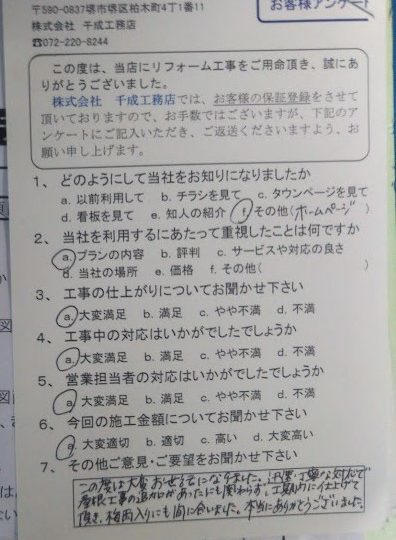 お客様アンケート
〒590-0837堺市堺区柏木町4丁1番11
株式会社 千成工務店
☎072-220-8244
この度は、当店にリフォーム工事をご用命頂き、誠にあ
りがとうございました。
株式会社 千成工務店では、お客様の保証登録をさせて
頂いておりますので、お手数ではございますが、下記のア
ンケートにご記入いただき、ご返送くださいますよう、お
願い申し上げます。
1、どのようにして当社をお知りになりましたか
a. 以前利用して b. チラシを見て c. タウンページを見て
d. 看板を見て e. 知人の紹介 f. その他(ホームページ)
2、当社を利用するにあたって重視したことは何ですか
a. プランの内容 b. 評判 c. サービスや対応の良さ
d. 当社の場所 e. 価格 f. その他( )
3、工事の仕上がりについてお聞かせ下さい
a. 大変満足 b. 満足 c. やや不満 d. 不満
4、工事中の対応はいかがでしたでしょうか
a. 大変満足 b. 満足 c. やや不満 d. 不満
5、営業担当者の対応はいかがでしたでしょうか
a. 大変満足 b. 満足 c. やや不満 d. 不満
6、今回の施工金額についてお聞かせ下さい
a. 大変適切 b. 適切 c. 高い d. 大変高い
7、その他ご意見・ご要望をお聞かせ下さい
この度は大変お世話になりました。迅速・丁寧な対応で
屋根工事の追加があったにも関わらず、工期内に仕上げて
頂き、梅雨入りにも間に合いました。本当にありがとうございました。